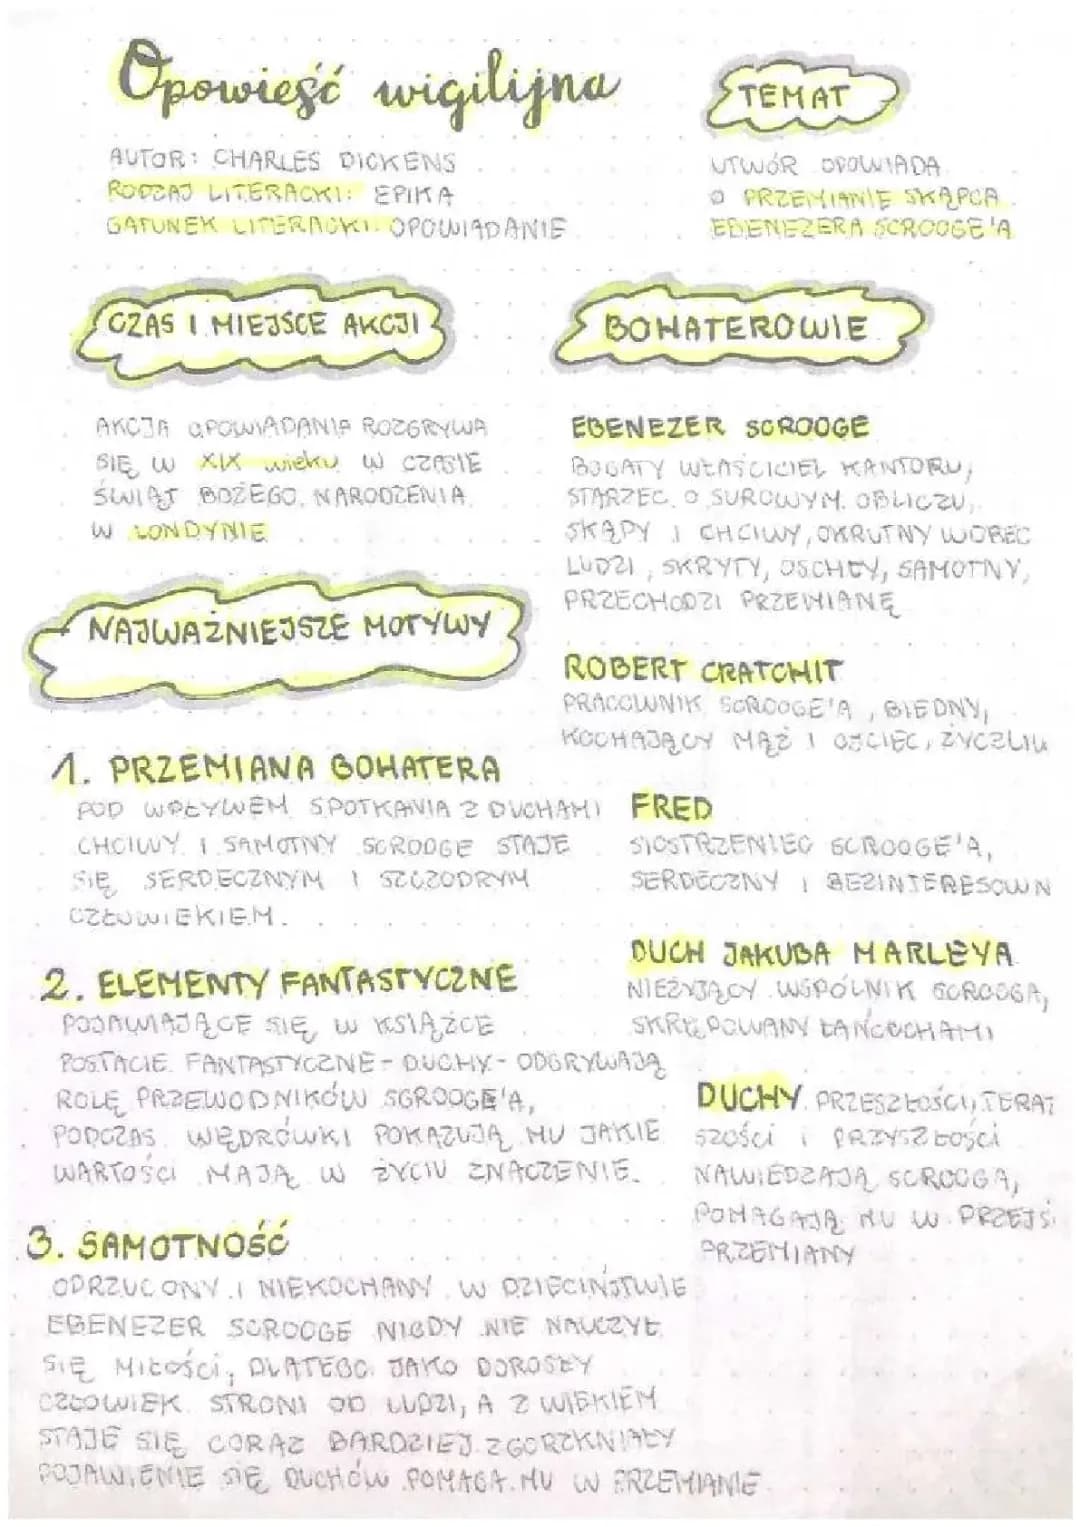 Opowieść wigilijna
AUTOR: CHARLES DICKENS
RODZAJ LITERACKI: EPIKA
GATUNEK LITERACKI: OPOWIADANIE
TEMAT
UTWÓR OPOWIADA
O PRZEMIANIE SKĄPCA
EBENEZERA SCROOGE'A
CZAS I MIEJSCE AKCJI
AKCJA OPOWIADANIA ROZGRYWA
SIĘ W XIX wieku W CZASIE
ŚWIĄT BOŻEGO NARODZENIA
W LONDYNIE
NAJWAŻNIEJSZE MOTYWY
1. PRZEMIANA BOHATERA
POD WPŁYWEM SPOTKANIA Z DUCHAMI
CHCIWY I SAMOTNY SCROOGE STAJE
SIĘ SERDECZNYM I SZCZODRYM
CZŁOWIEKIEM.
2. ELEMENTY FANTASTYCZNE
POJAWIAJĄCE SIĘ W KSIĄŻCE
POSTACIE FANTASTYCZNE - DUCHY - ODGRYWAJĄ
ROLĘ PRZEWODNIKÓW SCROOGE'A,
PODCZAS WĘDRÓWKI POKAZUJĄ MU JAKIE
WARTOŚCI MAJĄ W ŻYCIU ZNACZENIE.
3. SAMOTNOŚĆ
ODRZUCONY I NIEKOCHANY W DZIECIŃSTWIE
EBENEZER SCROOGE NIGDY NIE NAUCZYŁ
SIĘ MIŁOŚCI, DLATEGO JAKO DOROSŁY
CZŁOWIEK STRONI OD LUDZI, A Z WIEKIEM
STAJE SIĘ CORAZ BARDZIEJ ZGORZKNIAŁY
POJAWIENIE SIĘ DUCHÓW POMAGA MU W PRZEMIANIE
BOHATEROWIE
EBENEZER SCROOGE
BOGATY WŁAŚCICIEL KANTORU,
STARZEC O SUROWYM OBLICZU,
SKĄPY I CHCIWY, OKRUTNY WOBEC
LUDZI, SKRYTY, OSCHŁY, SAMOTNY,
PRZECHODZI PRZEMIANĘ
ROBERT CRATCHIT
PRACOWNIK SCROOGE'A, BIEDNY,
KOCHAJĄCY MĄŻ I OJCIEC, ŻYCZLIW
FRED
SIOSTRZENIEC SCROOGE'A,
SERDECZNY I BEZINTERESOWN
DUCH JAKUBA MARLEYA
NIEŻYJĄCY WSPÓLNIK SCROOGA,
SKRĘPOWANY ŁAŃCUCHAMI
DUCHY PRZESZŁOŚCI, TERAŹ
SZOŚCI i PRZYSZŁOŚCI
NAWIEDZAJĄ SCROOGA,
POMAGAJĄ MU W PRZEJŚ
PRZEMIANY